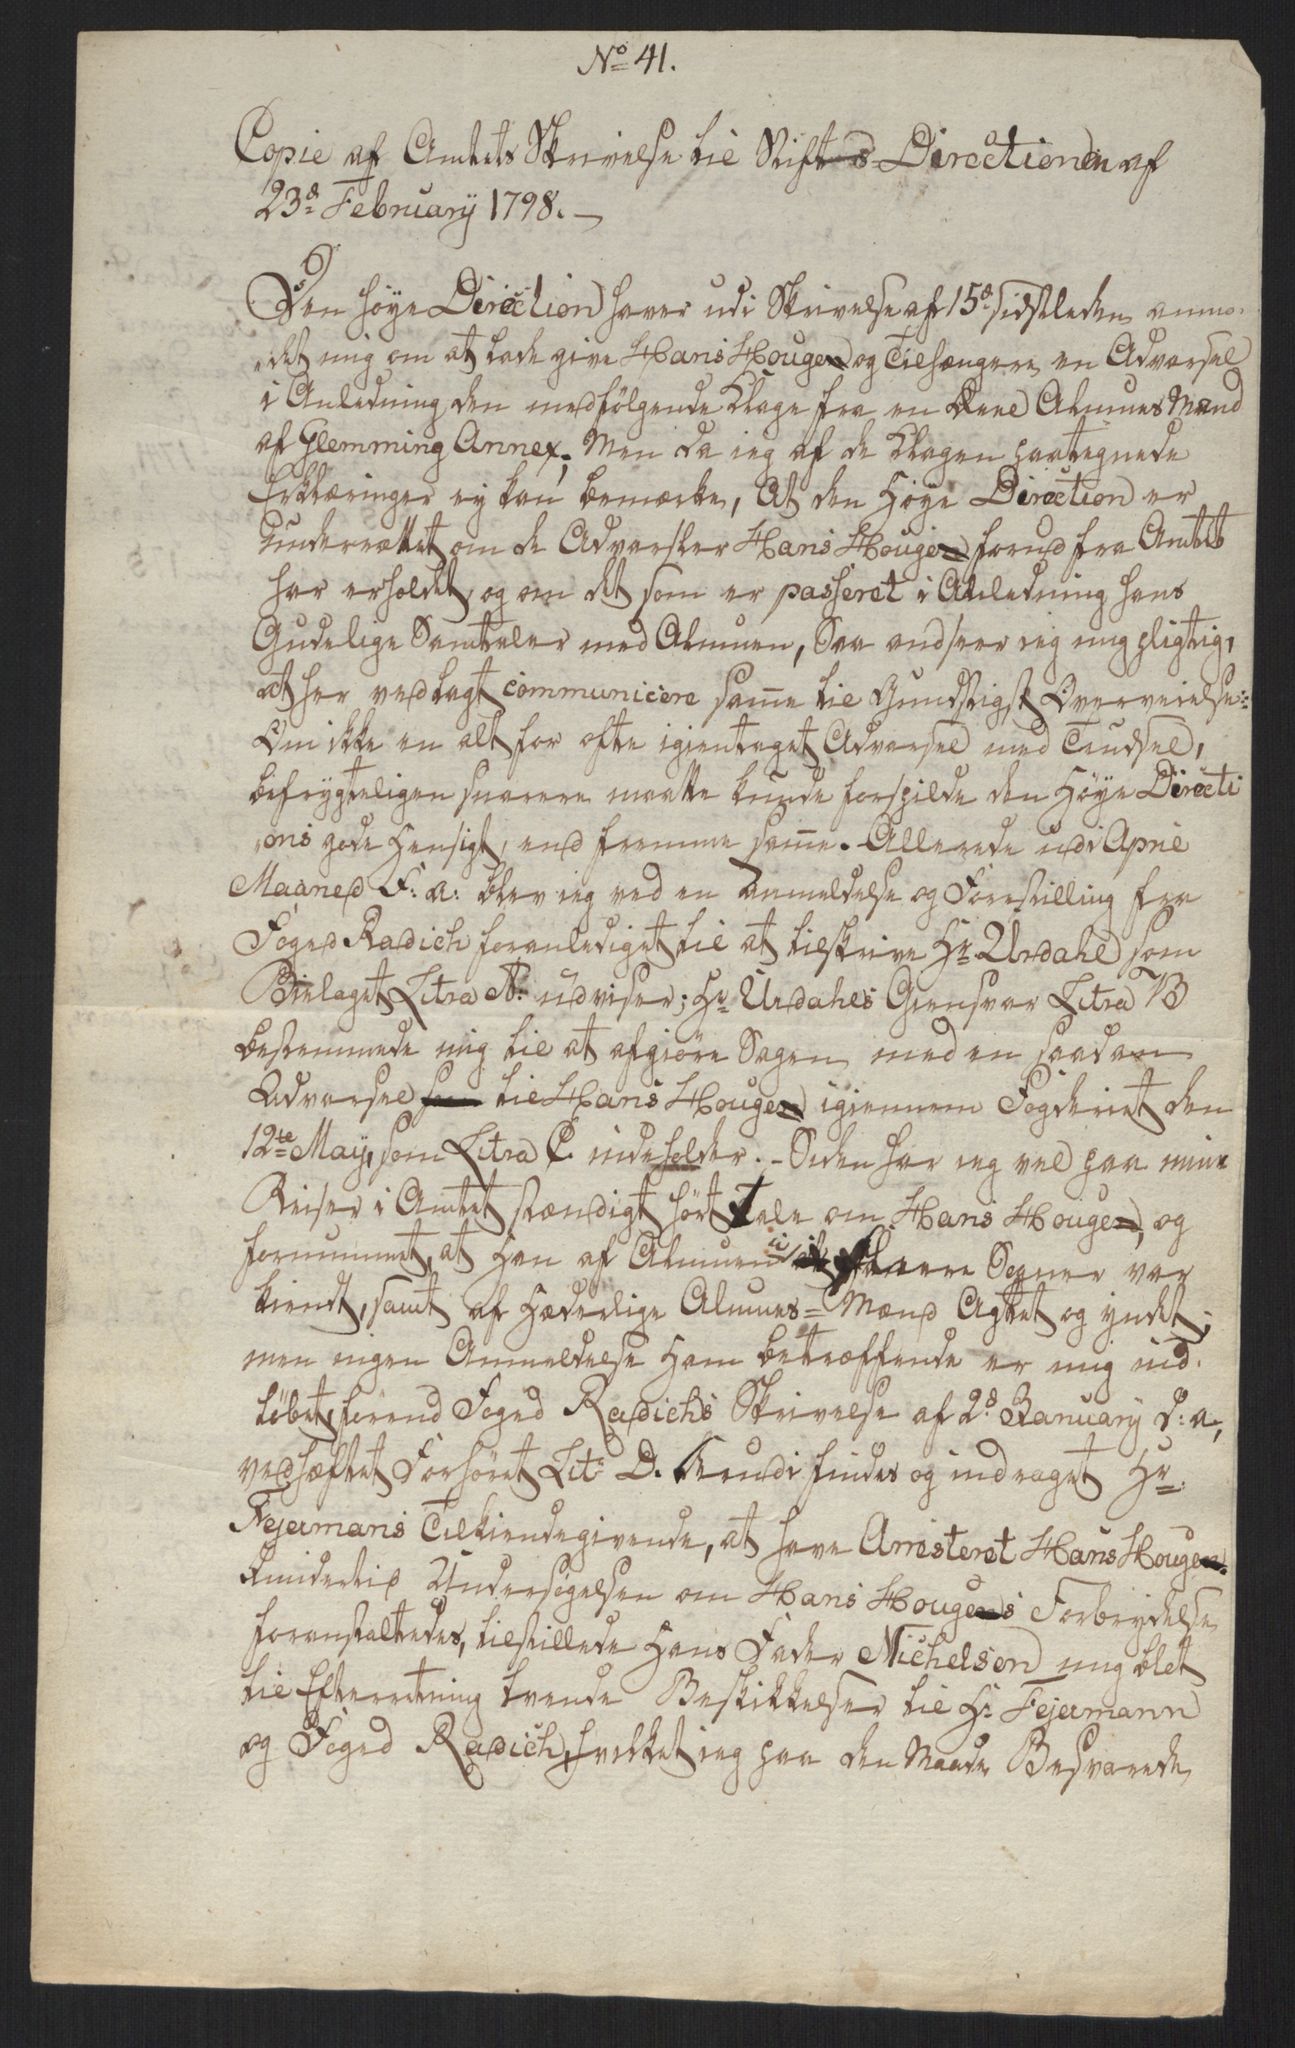 No 41.
Copie af Amtets Skrivelse til Stifts Directionen af
23d February 1798. —
Den høye Direction haver udi Skrivelse af 15d sidstleden anmo-
det mig om at lade give Hans Hougen og Tilhængere en Advarsel
i Anledning den medfølgende Klage fra en Deel Almues Mænd
af Glemming Annex; Men da ieg af de Klagen paategnede
Erklæringer ey kan bemærke, At den Høye Direction er
underrættet om de Advarsler Hans Hougen forud fra Amtet
har erholdet, og om det som er passeret i Anledning hans
Gudelige Samtaler med Almuen, Saa andseer ieg mig pligtig,
at her vedlagt communicere samme til Gunstigst Overveielse:
Om ikke en alt for ofte igientaget Advarsel med Trudsel,
befrygteligen snarere maatte kunde forspilde den Høye Directi
ons gode Hensigt, end fremme samme. Allerede udi April
Maaned F: a: blev ieg ved en Anmeldelse og Forestilling fra
Foged Radich foranlediget til at tilskrive Hr Urdahl som
Bielaget Litra A: udviser; Hr Urdahls Giensvar Litra B
bestemmede mig til at afgiøre Sagen med en saadan
Advarsel til Hans Hougen igiennem Fogderiet den
12te May, som Litra C. indeholder. - Siden har ieg vel paa mine
Reiser i Amtet stændigt hørt Tale om Hans Hougen, og
fornummet, at Han af Almuen i fleere Sogner var
kiendt, samt af Hæderlige Almues-Mænd Agtet og yndet;
men ingen Anmeldelse Ham betræffende er mig ind-
løbet, førend Foged Radichs Skrivelse af 2d January d: a,
vedhæftet Forhøret Litr D. herudi findes og indraget Hr
Fejermans Tilkiendegivende, at have Arresteret Hans Hougen.
Imidlertid Undersøgelsen om Hans Hougens Forbrydelse
foranstaltedes, tilstillede Hans Fader Nichelsen mig blet
til Efterretning tvende Beskikkelser til Hr Fejermann
og Foged Radich, hvilket ieg paa den Maade Besvarede